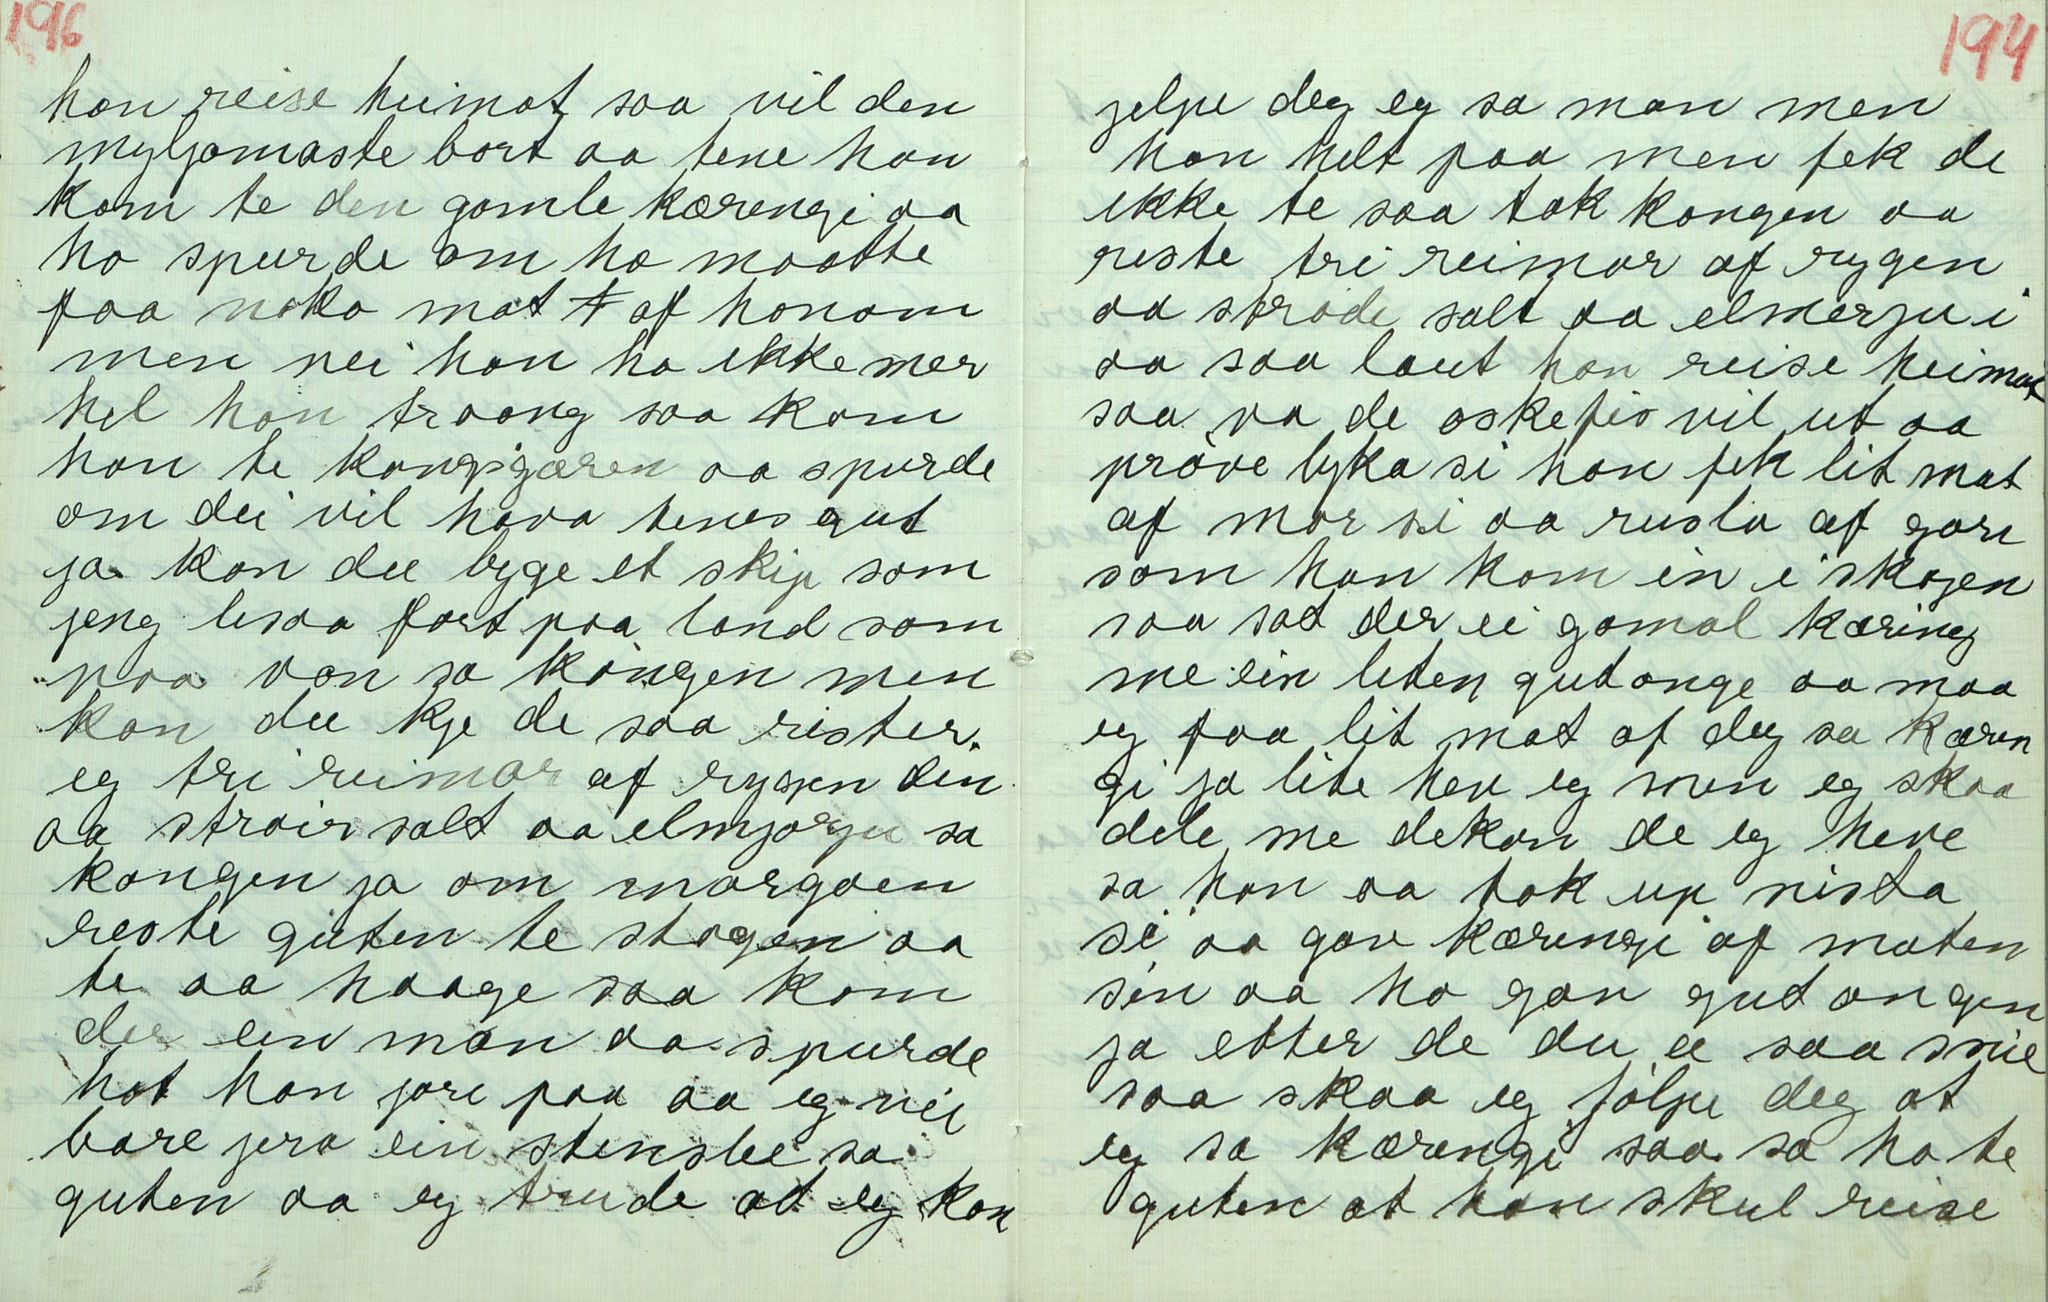 196
han reise heimat saa vil den
myljomaste bort aa tene han
kom te den gamle kærengi aa
ho spurde om ho maatte
faa noko mat af honom
men nei han ha ikke mer
hel han traang saa kom
han te kongsgæren aa spurde
om dei vil hava tenes gut
ja kan du byge et skip som
jeng lisaa fort paa land som
paa van sa kongen men
kan du kje de saa rister
eg tri reimar af rygen din
aa strair salt aa elmjørju sa
kongen ja om morgaen
reste guten te skogen aa
te aa haage saa kom
der ein man aa spurde
hot han jore paa aa eg vil
bare jera ein stenslee sa
guten aa eg trude at eg kan
194
jelpe deg eg sa man men
han helt paa men fek de
ikke te saa tok kongen aa
reste tri reimar af rygen
aa strade salt aa elmerju i
aa saa laut han reise heimat
saa va de oskefis vil ut aa
prøve lyka si han fek lit mat
af mor si aa rusla af gare
som han kom in i skogen
saa sat der ei gamal kæring
me ein liten gutonge aa maa
eg faa lit mat af deg sa kæren
gi ja lite hev eg men eg skaa
dele me dekan de eg heve
sa han aa tok up nista
si aa gav kærengi af maten
sin aa ho gav gut ongen
ja etter de du e saa snil
saa skaa eg jølpe deg at
eg sa kærengi saa sa ho te
guten at han skul reise